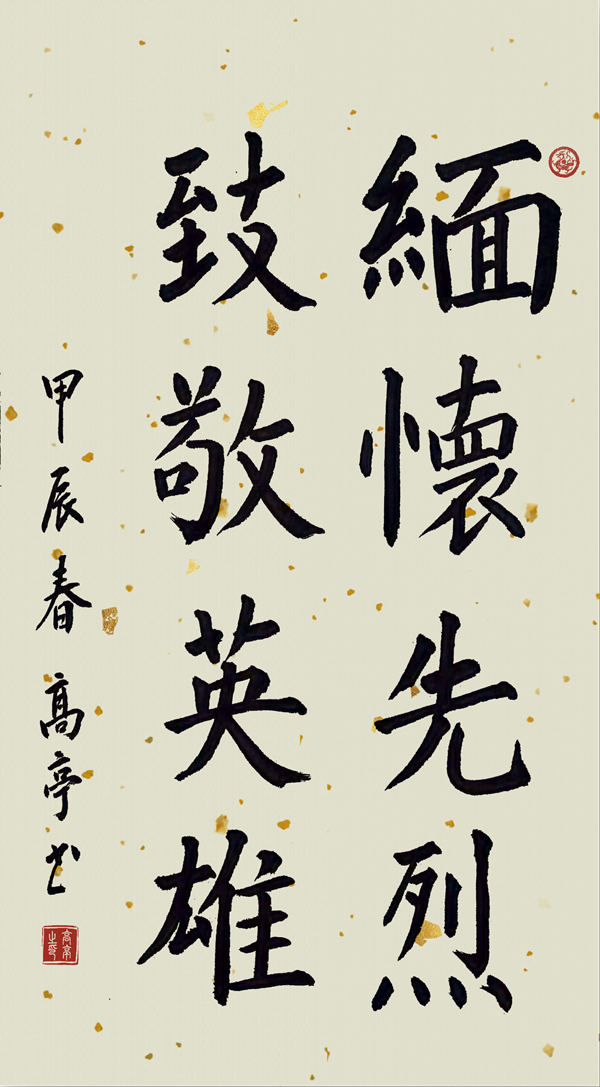 緬懷先烈
致敬英雄
甲辰春 高亭书
高亭之印